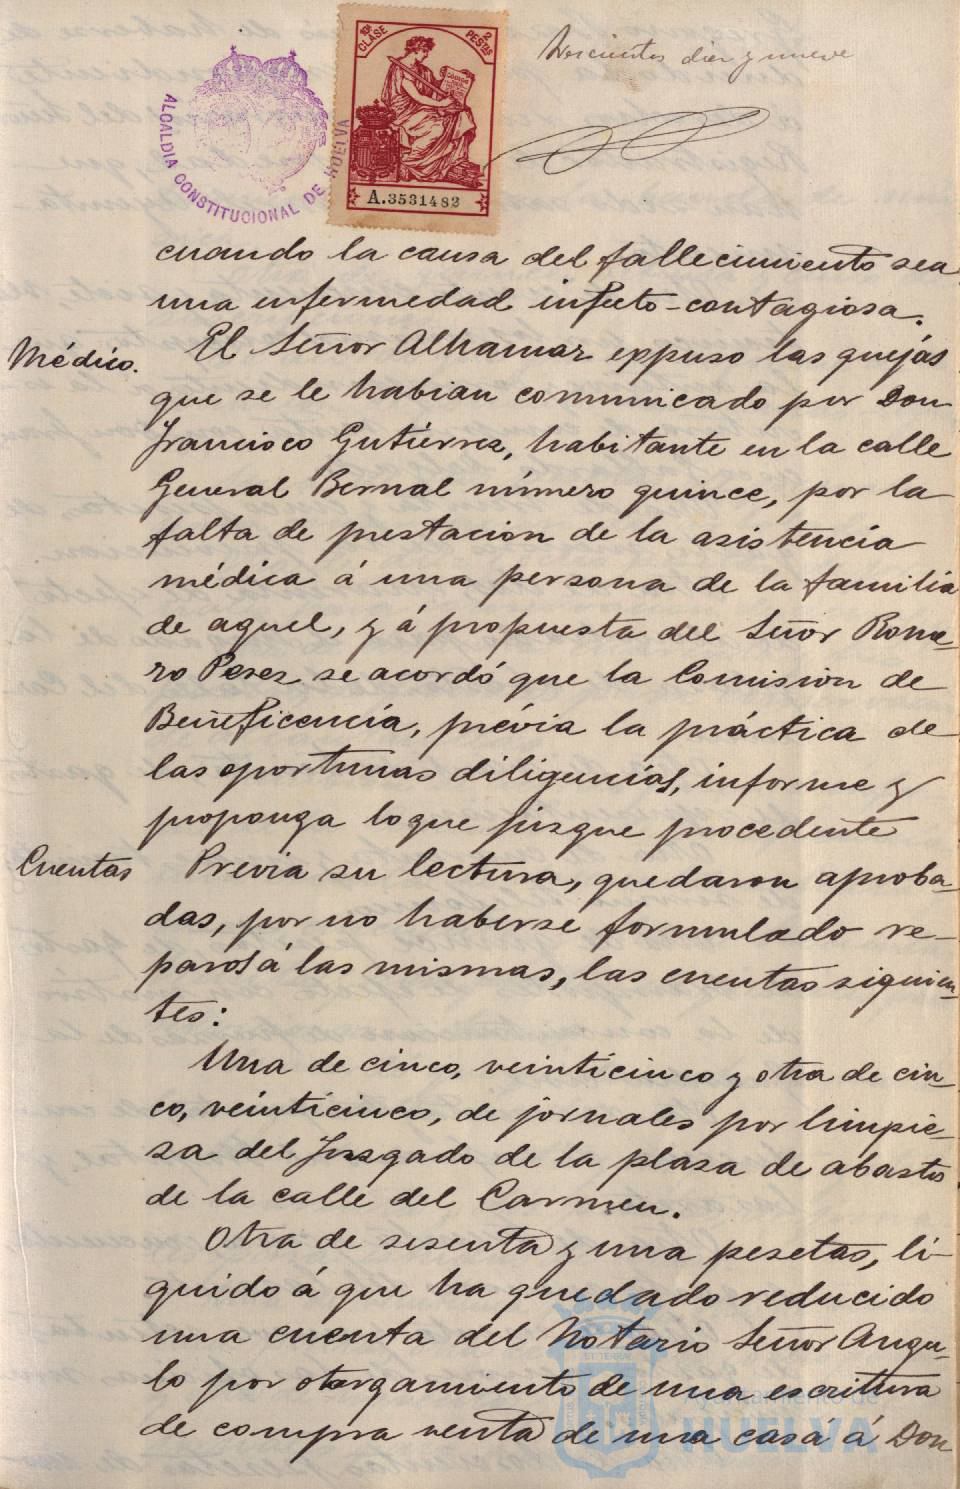 Doscientos diez y nueve
10ª CLASE
2 PESTAS
CODIGO
A.3531482
ALCALDIA CONSTITUCIONAL DE HUELVA
cuando la causa del fallecimiento sea
una enfermedad infecto-contagiosa.
Médico.
El Señor Alhamar expuso las quejas
que se le habian comunicado por Don
Francisco Gutiérrez, habitante en la calle
General Bernal número quince, por la
falta de prestacion de la asistencia
médica á una persona de la familia
de aquel, y á propuesta del Señor Rome-
ro Perez se acordó que la Comision de
Beneficencia, prévia la práctica de
las oportunas diligencias, informe y
proponga lo que juzgue procedente
Cuentas
Previa su lectura, quedaron aproba-
das, por no haberse formulado re-
paros á las mismas, las cuentas siguien-
tes:
Una de cinco, veinticinco y otra de cin-
co, veinticinco, de jornales por limpie-
za del Juzgado de la plaza de abastos
de la calle del Carmen.
Otra de sesenta y una pesetas, lí-
quido á que ha quedado reducido
una cuenta del Notario Señor Angu-
lo por otorgamiento de una escritura
de compra venta de una casa á Don
Ayuntamiento de
HUELVA